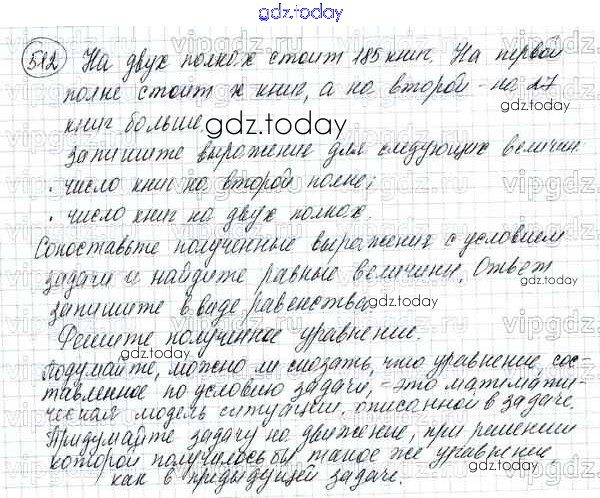 gdz.today
512 На двух полках стоит 185 книг. На первой
полке стоит x книг, а на второй - на 27
книг больше.
gdz.today
Запишите выражение для следующих величин
· число книг на второй полке;
· число книг на двух полках.
Сопоставьте полученные выражения с условием
задачи и найдите равные величины. Ответ
gdz.today
запишите в виде равенства.
Решите полученное уравнение.
gdz.today
Подумайте, можно ли сказать, что уравнение, сос-
тавленное по условию задачи, - это математи-
ческая модель ситуации, описанной в задаче.
gdz.today
Придумайте задачу на движение, при решении
которой получилось бы такое же уравнение
как в предыдущей задаче.
gdz.today